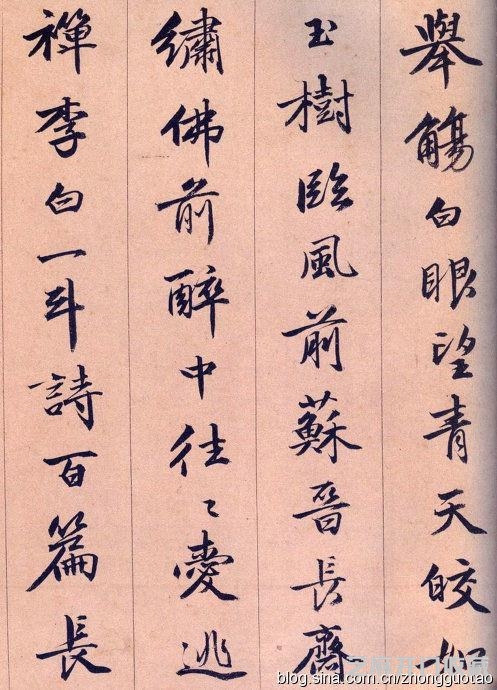 舉觴白眼望青天皎如
玉樹臨風前蘇晉長齋
繡佛前醉中往〻愛逃
禪李白一斗詩百篇長
blog.sina.com.cn/zhongguotao